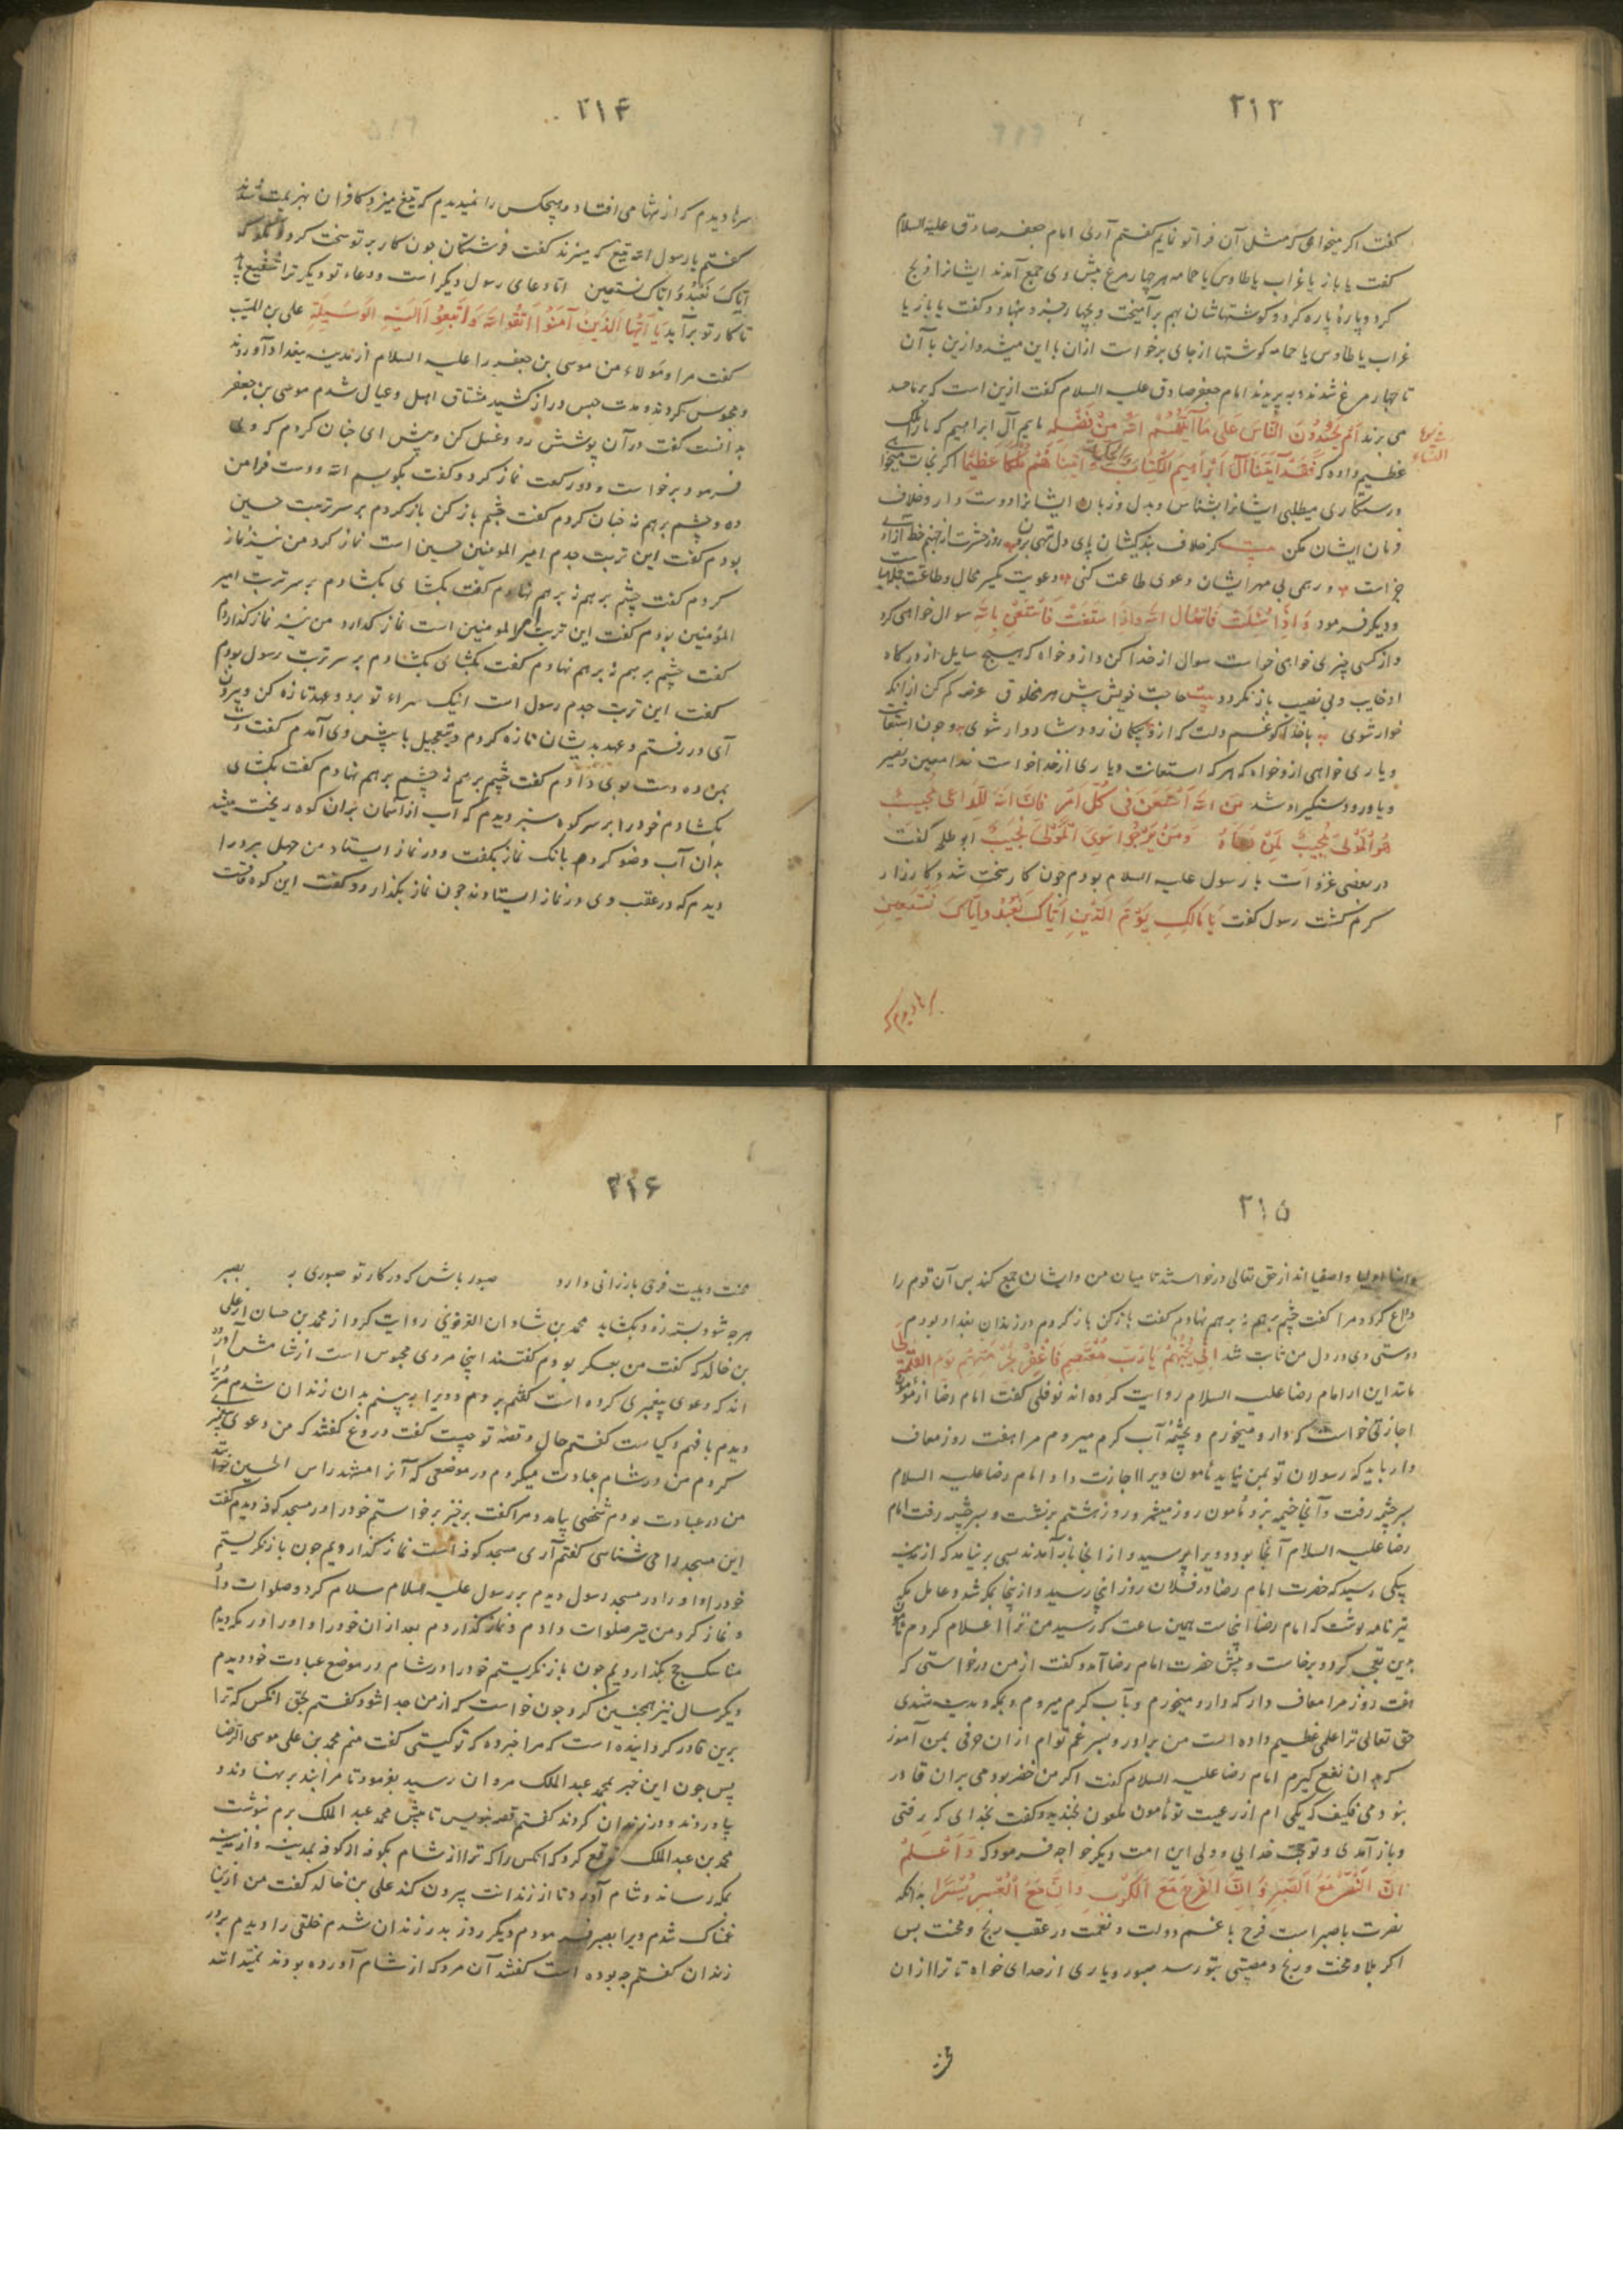 ۲۱۳
گفت اگر میخواهی که مثل آن فراتو نمایم گفتم آری امام جعفر صادق علیه السلام
گفت یا باز یا غراب یا طاوس یا حمامه هر چهار مرغ پیش وی جمع آمدند ایشانرا ذبح
کرد و پاره پاره کرد و گوشتهاشان بهم برآمیخت و بنهاد و گفت یا باز یا
غراب یا طاوس یا حمامه گوشتها از جای برخواست ازان با این میشد وازین با آن
تا چهار مرغ شدند و به پریدند امام جعفر صادق علیه السلام گفت ازین است که بر ما حسد
می برند اَم یَحْسُدُونَ النَّاسَ عَلَی مَا آتَیهُمُ اللهُ مِنْ فَضْلِهِ مایم آل ابراهیم که مارا ملک
عظیم داده که فَقَدْ آتَیْنَا آلَ اِبْرَاهِیمَ الْکِتَابَ وَالْحِکْمَةَ وَآتَیْنَا هُمْ مُلْکًا عَظِیمًا اگر نجات میخواهی
ورستگاری میطلبی ایشانرا بشناس و بدل و زبان ایشانرا دوست دار و خلاف
فرمان ایشان مکن بیت گر خلاف بندگیشان پای دل روز حشرت از جهنم خط آزادی
خواست ور همی بی مهر ایشان دعوی طاعت کنی دعویت یکسر محال و طاعتت
و دیگر فرمود وَاِذَا سُئِلْتَ فَاسْئَلِ اللهَ وَاِذَا اسْتَعَنْتَ فَاسْتَعِنْ بِاللهِ سوال خواهی کرد
و از کسی چیزی خواهی خواست سوال از خدا کن و ازو خواه که هیچ سایل از درگاه
او خایب و بی نصیب باز نگردد بیت حاجت خویش پیش هر مخلوق عرضه کم کن ازانکه
خوار شوی با خدا گو غم دلت که ازو بیگمان زود شاد و ار شوی و چون استعانت
و یاری خواهی ازو خواه که هرکه استعانت و یاری از خدا خواست خدا معین و نصیر
و یاور و دستگیر او شد مَنِ اللهَ اسْتَعَنَ فِی کُلِّ اَمْرٍ فَاِنَّ اللهَ لِلدَّاعِی مُجِیبٌ
هُوَ الْمَوْلَی یُجِیبُ لِمَنْ دَعَاهُ وَمَنْ یَرْجُوا سِوَی الْمَوْلَی یُخَیَّبُ ابو طلحه گفت
در بعضی غزوات با رسول علیه السلام بودم چون کار سخت شد و کارزار
گرم گشت رسول گفت یَا مَالِکِ یَوْمِ الدِّینِ اِیَّاکَ نَعْبُدُ وَاِیَّاکَ نَسْتَعِینُ
سرها دیدم که
۲۱۴
سرها دیدم که از تنها می افتاد و هیچکس را نمیدیدم که تیغ میزد و کافران بهزیمت شدند
گفتم یا رسول الله تیغ که میزند گفت فرشتگان چون کار بر تو سخت گردد
اِیَّاکَ نَعْبُدُ وَاِیَّاکَ نَسْتَعِینُ اما دعای رسول دیگر است و دعاء تو دیگر ترا شفیع باید
تا کار تو برآید یَا اَیُّهَا الَّذِینَ آمَنُوا اتَّقُوا اللهَ وَابْتَغُوا اِلَیْهِ الْوَسِیلَةَ علی بن المسیب
گفت مرا و مولاء من موسی بن جعفر را علیه السلام از مدینه ببغداد آوردند
و محبوس کردند و مدت حبس دراز کشید مشتاق اهل و عیال شدم موسی بن جعفر
بدانست گفت درآن پوشش رو و غسل کن و پیش ای چنان کردم که وی
فرمود برخواست و دو رکعت نماز کرد و گفت بگو بسم الله و دست فرا من
ده و چشم بر هم نه چنان کردم گفت چشم باز کن باز کردم بر سر تربت حسین
بودم گفت این تربت جدم امیر المومنین حسین است نماز کرد من نیز نماز
کردم گفت چشم بر هم نه بر هم نهادم گفت بگشای بگشادم بر سر تربت امیر
المومنین بودم گفت این تربت امیر المومنین است نماز گذارد و من نیز نماز گذاردم
گفت چشم بر هم نه بر هم نهادم گفت بگشای بگشادم بر سر تربت رسول بودم
گفت این تربت جدم رسول است اینک سراء تو برو و عهد تازه کن و بیرون
آی در رفتم و عهد بدیشان تازه کردم و بتعجیل با پیش وی آمدم گفت دست
بمن ده دست بوی دادم گفت چشم بر هم نه چشم بر هم نهادم گفت بگشای
بگشادم خود را بر سر کوه سبز دیدم که آب از آسمان بران کوه ریخت میشد
بدان آب وضو کردم بانک نماز بگفت و در نماز ایستاد من چهل مرد را
دیدم که در عقب وی در نماز ایستادند چون نماز بگذارد گفت این کوه قافست
۲۱۵
و اصفیا اند از حق تعالی درخواستند تا میان من وایشان جمع کند پس آن قوم را
وداع کرد و مرا گفت چشم بر هم نه بر هم نهادم گفت باز کن باز کردم در زندان بغداد بودم
دوستی وی در دل من ثابت شد
مانند این از امام رضا علیه السلام روایت کرده اند نوفلی گفت امام رضا از مامون
اجازتی خواست که دارو میخورم و بچشمه آب گرم میروم مرا هفت روز معاف
دار باید که رسولان تو بمن نیایند مامون ویرا اجازت داد امام رضا علیه السلام
بسر چشمه رفت و آنجا خیمه بزد و مامون روز میشمرد روز هشتم برنشست و بسر چشمه رفت امام
رضا علیه السلام آنجا بود و ویرا بپرسید و از انجا باز آمدند بسی برنیامد که از مدینه
پیکی رسید که حضرت امام رضا در فلان روز اینجا رسید و ازینجا بمکه شد و عامل مکه
نیز نامه نوشت که امام رضا اینجاست همین ساعت که رسید من ترا اعلام کردم مامون
ازین تعجب کرد و برخاست و پیش حضرت امام رضا آمد و گفت از من درخواستی که
هفت روز مرا معاف دار که دارو میخورم و بآب گرم میروم و بمکه و مدینه شدی
حق تعالی ترا علمی عظیم داده است من برادر و پسر عم توام ازان حرفی بمن آموز
که بدان نفع گیرم امام رضا علیه السلام گفت اگر من خضر بودمی بران قادر
نبودمی فکیف که یکی ام از رعیت تو مامون ملعون بخندید و گفت بخدای که رفتی
و باز آمدی و تو حجت خدایی و ولی این امت دیگر خواجه فرمود که وَاعْلَمْ
اِنَّ النَّصْرَ مَعَ الصَّبْرِ وَاِنَّ الْفَرَجَ مَعَ الْکَرْبِ وَاِنَّ مَعَ الْعُسْرِ یُسْرًا بدانکه
نصرت با صبر است فرح با غم دولت و نعمت در عقب رنج و محنت پس
اگر بلا و محنت و رنج و مصیبتی بتو رسد صبور و یاری از خدای خواه تا ترا ازان
محنت
۲۱۶
محنت و بلیت فرجی بارزانی دارد صبور باش که در کار تو صبوری به بصبر
هرچه شود بسته زود بگشاید محمد بن شاذان القزوینی روایت کرد از محمد بن حسان از علی
بن خالد که گفت من بعسکر بودم گفتند اینجا مردی محبوس است از شامش آورده
اند که دعوی پیغمبری کرده است گفتم بروم و ویرا ببینم بدان زندان شدم مردی
دیدم با فهم و کیاست گفتم حال و قصه تو چیست گفت دروغ گفتند که من دعوی پیغمبری
کردم من در شام عبادت میکردم در موضعی که آنرا مشهد راس الحسین خوانند
من در عبادت بودم شخصی بیامد و مرا گفت برخیز برخواستم خود را در مسجد کوفه دیدم گفت
این مسجد را می شناسی گفتم آری مسجد کوفه است نماز گذاردیم چون باز نگریستم
خود را و او را در مسجد رسول دیدم بر رسول علیه السلام سلام کرد و صلوات داد
و نماز کرد من نیز صلوات دادم و نماز گذاردم بعد ازان خود را و او را در مکه دیدم
مناسک حج بگذاردیم چون باز نگریستم خود را در شام در موضع عبادت خود دیدم
دیگر سال نیز همچنین کرد چون خواست که از من جدا شود گفتم بحق انکس که ترا
برین قادر گردانیده است که مرا خبر ده که تو کیستی گفت منم محمد بن علی موسی الرضا
پس چون این خبر بمحمد عبد الملک مروان رسید بفرمود تا مرا بند بر نهادند و
بیاوردند و در زندان کردند گفتم قصه بنویس تا پیش محمد عبد الملک برم بنوشت
محمد بن عبد الملک توقیع کرد که انکس را که ترا از شام بکوفه از کوفه بمدینه و از مدینه
بمکه رساند و شام آورد تا از زندانت بیرون کند علی بن خالد گفت من ازین
غمناک شدم ویرا بصبر فرمودم دیگر روز بدر زندان شدم خلقی را دیدم بر در
زندان گفتم چه بوده است گفتند آن مرد که از شام آورده بودند نمیدانند